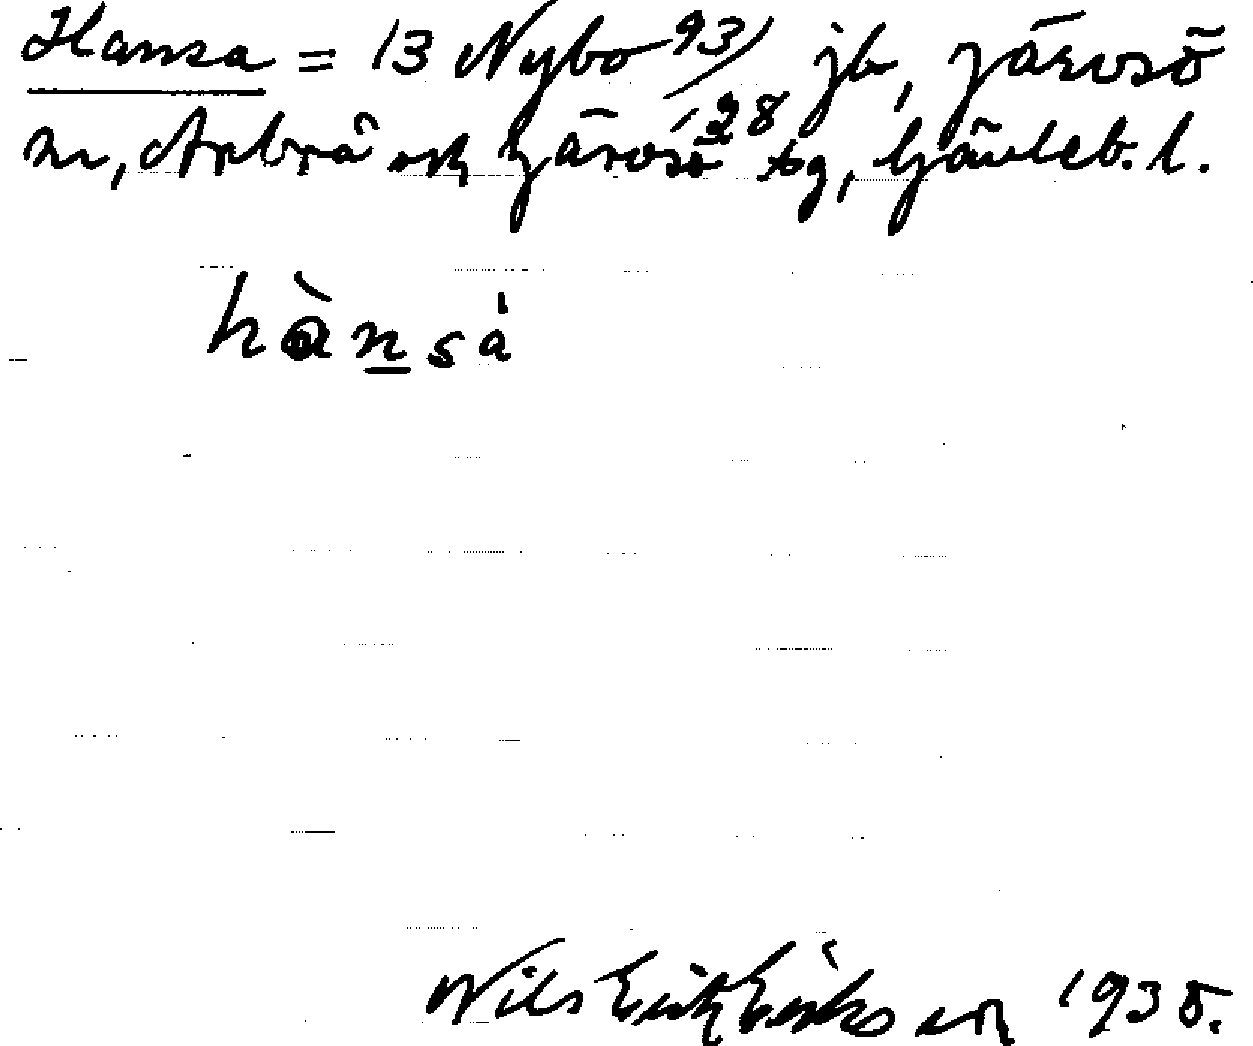 Hansa = 13 Nybo 93/128 jb, Järvsö
sn, Arbrå och Järvsö tg, Gävleb. l.
hànsá
Nils Erik Eriksson 1935.